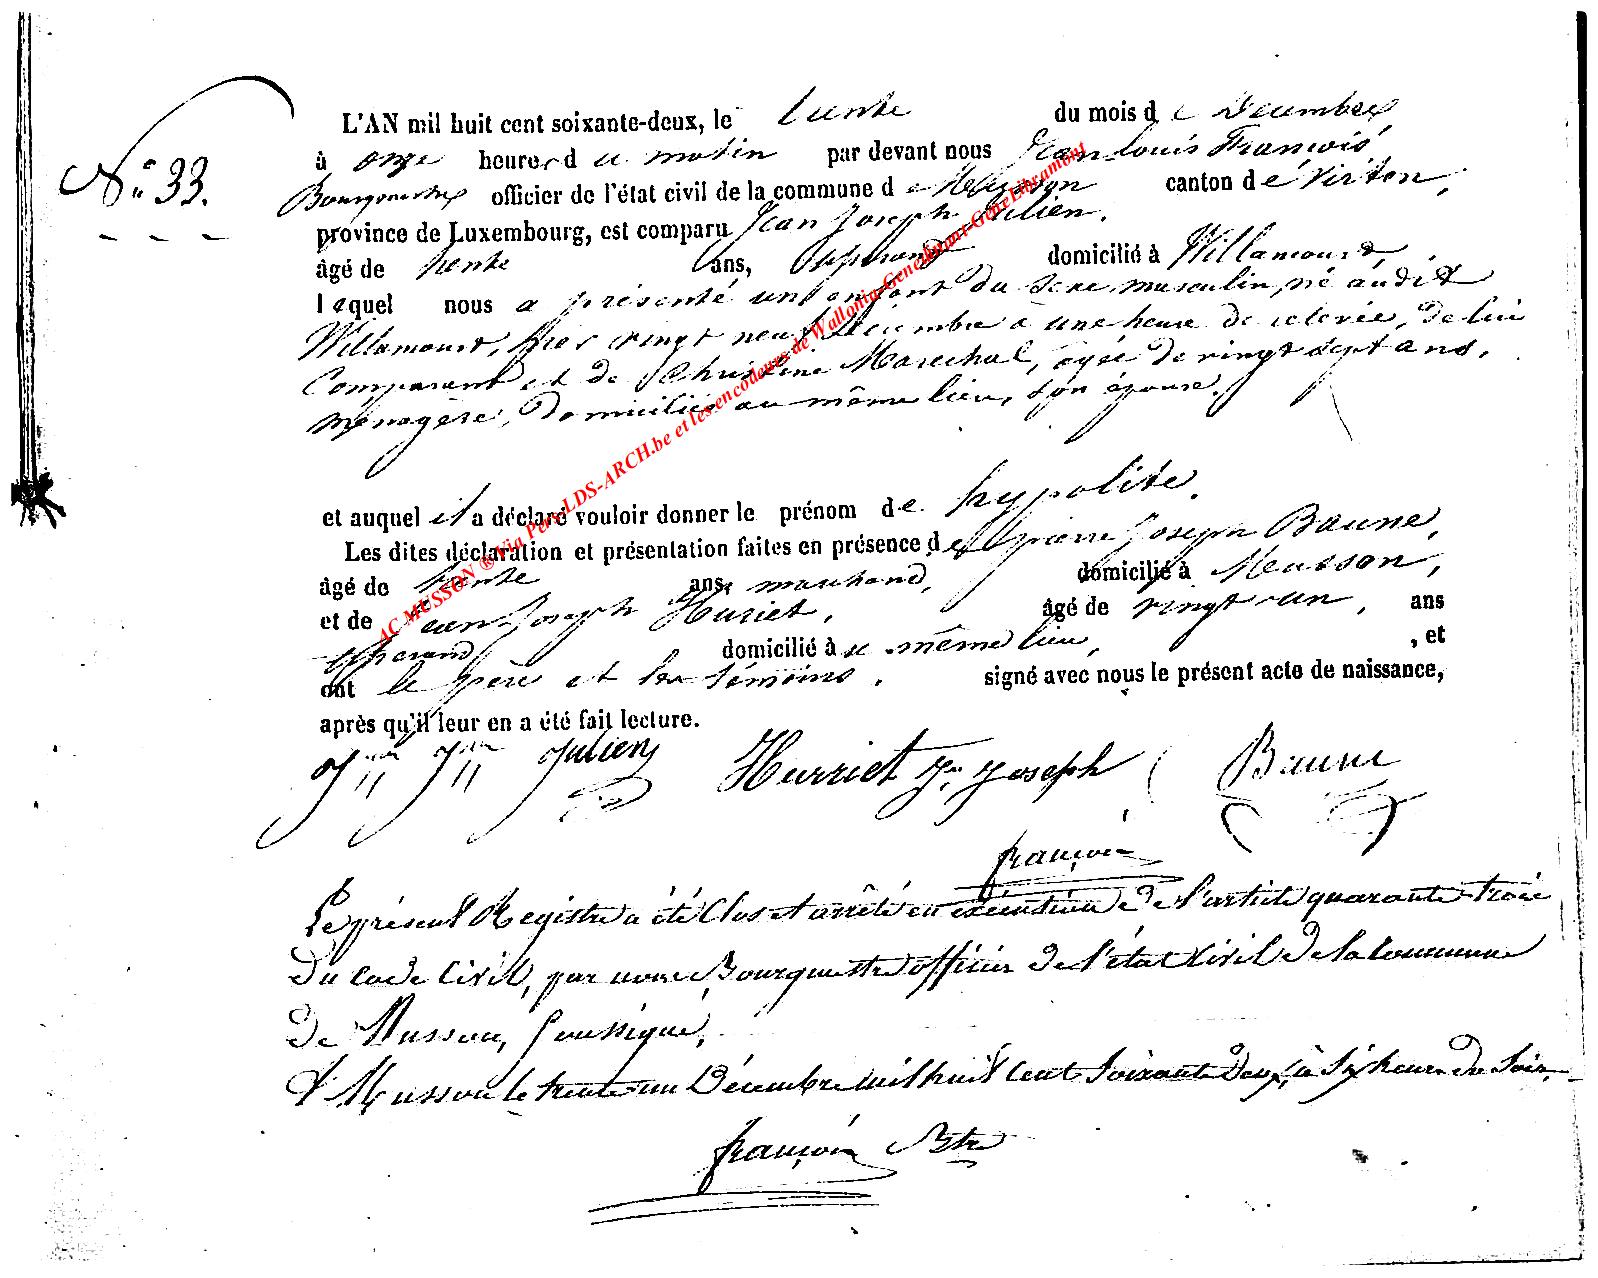 N° 33.
L'AN mil huit cent soixante-deux, le trente du mois de Décembre
à onze heures du matin par devant nous Jean Louis François
Bourgmestre officier de l'état civil de la commune de Musson canton de Virton,
province de Luxembourg, est comparu Jean Joseph Julien,
âgé de trente ans, tisserand domicilié à Willancourt,
lequel nous a présenté un enfant du sexe masculin, né audit
Willancourt, hier vingt neuf Décembre à une heure de relevée, de lui
Comparant et de Christine Marechal, agée de vingt sept ans,
ménagère, domiciliée au même lieu, son épouse.
et auquel il a déclaré vouloir donner le prénom de hypolite.
Les dites déclaration et présentation faites en présence de pierre Joseph Baune,
âgé de trente ans, marchand, domicilié à Musson,
et de Jean Joseph Huriet, âgé de vingt un, ans
tisserand domicilié à u même lieu, , et
ont le père et les témoins, signé avec nous le présent acte de naissance,
après qu'il leur en a été fait lecture.
Julien Hurriet Jn Joseph Baune
françois
Le présent Registre a été Clos et arrêté en exécution de l'article quarante trois
du code Civil, par nous Bourgmestre officier de l'état Civil de la Commune
de Musson, soussigné,
A Musson le trente un Décembre mil huit cent soixante deux, à six heures du soir.
françois Btre
AC MUSSON ® Via Pers LDS-ARCH.be et les encodeurs de Wallonia-Genealmont-GeneLibramont